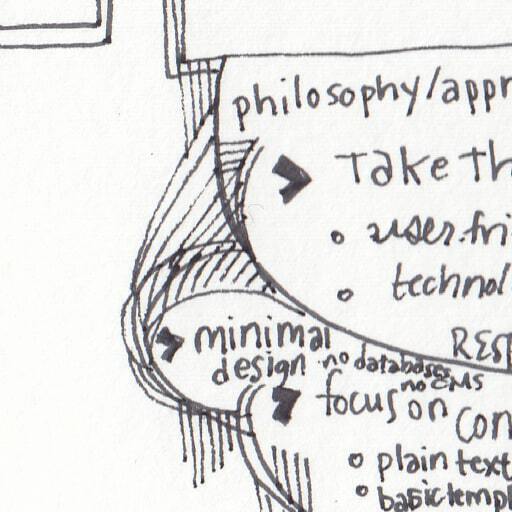 philosophy/appr
Take th
user.fri
technol
RESP
minimal
design no databases
no CMS
focus on con
plain text
basic templ